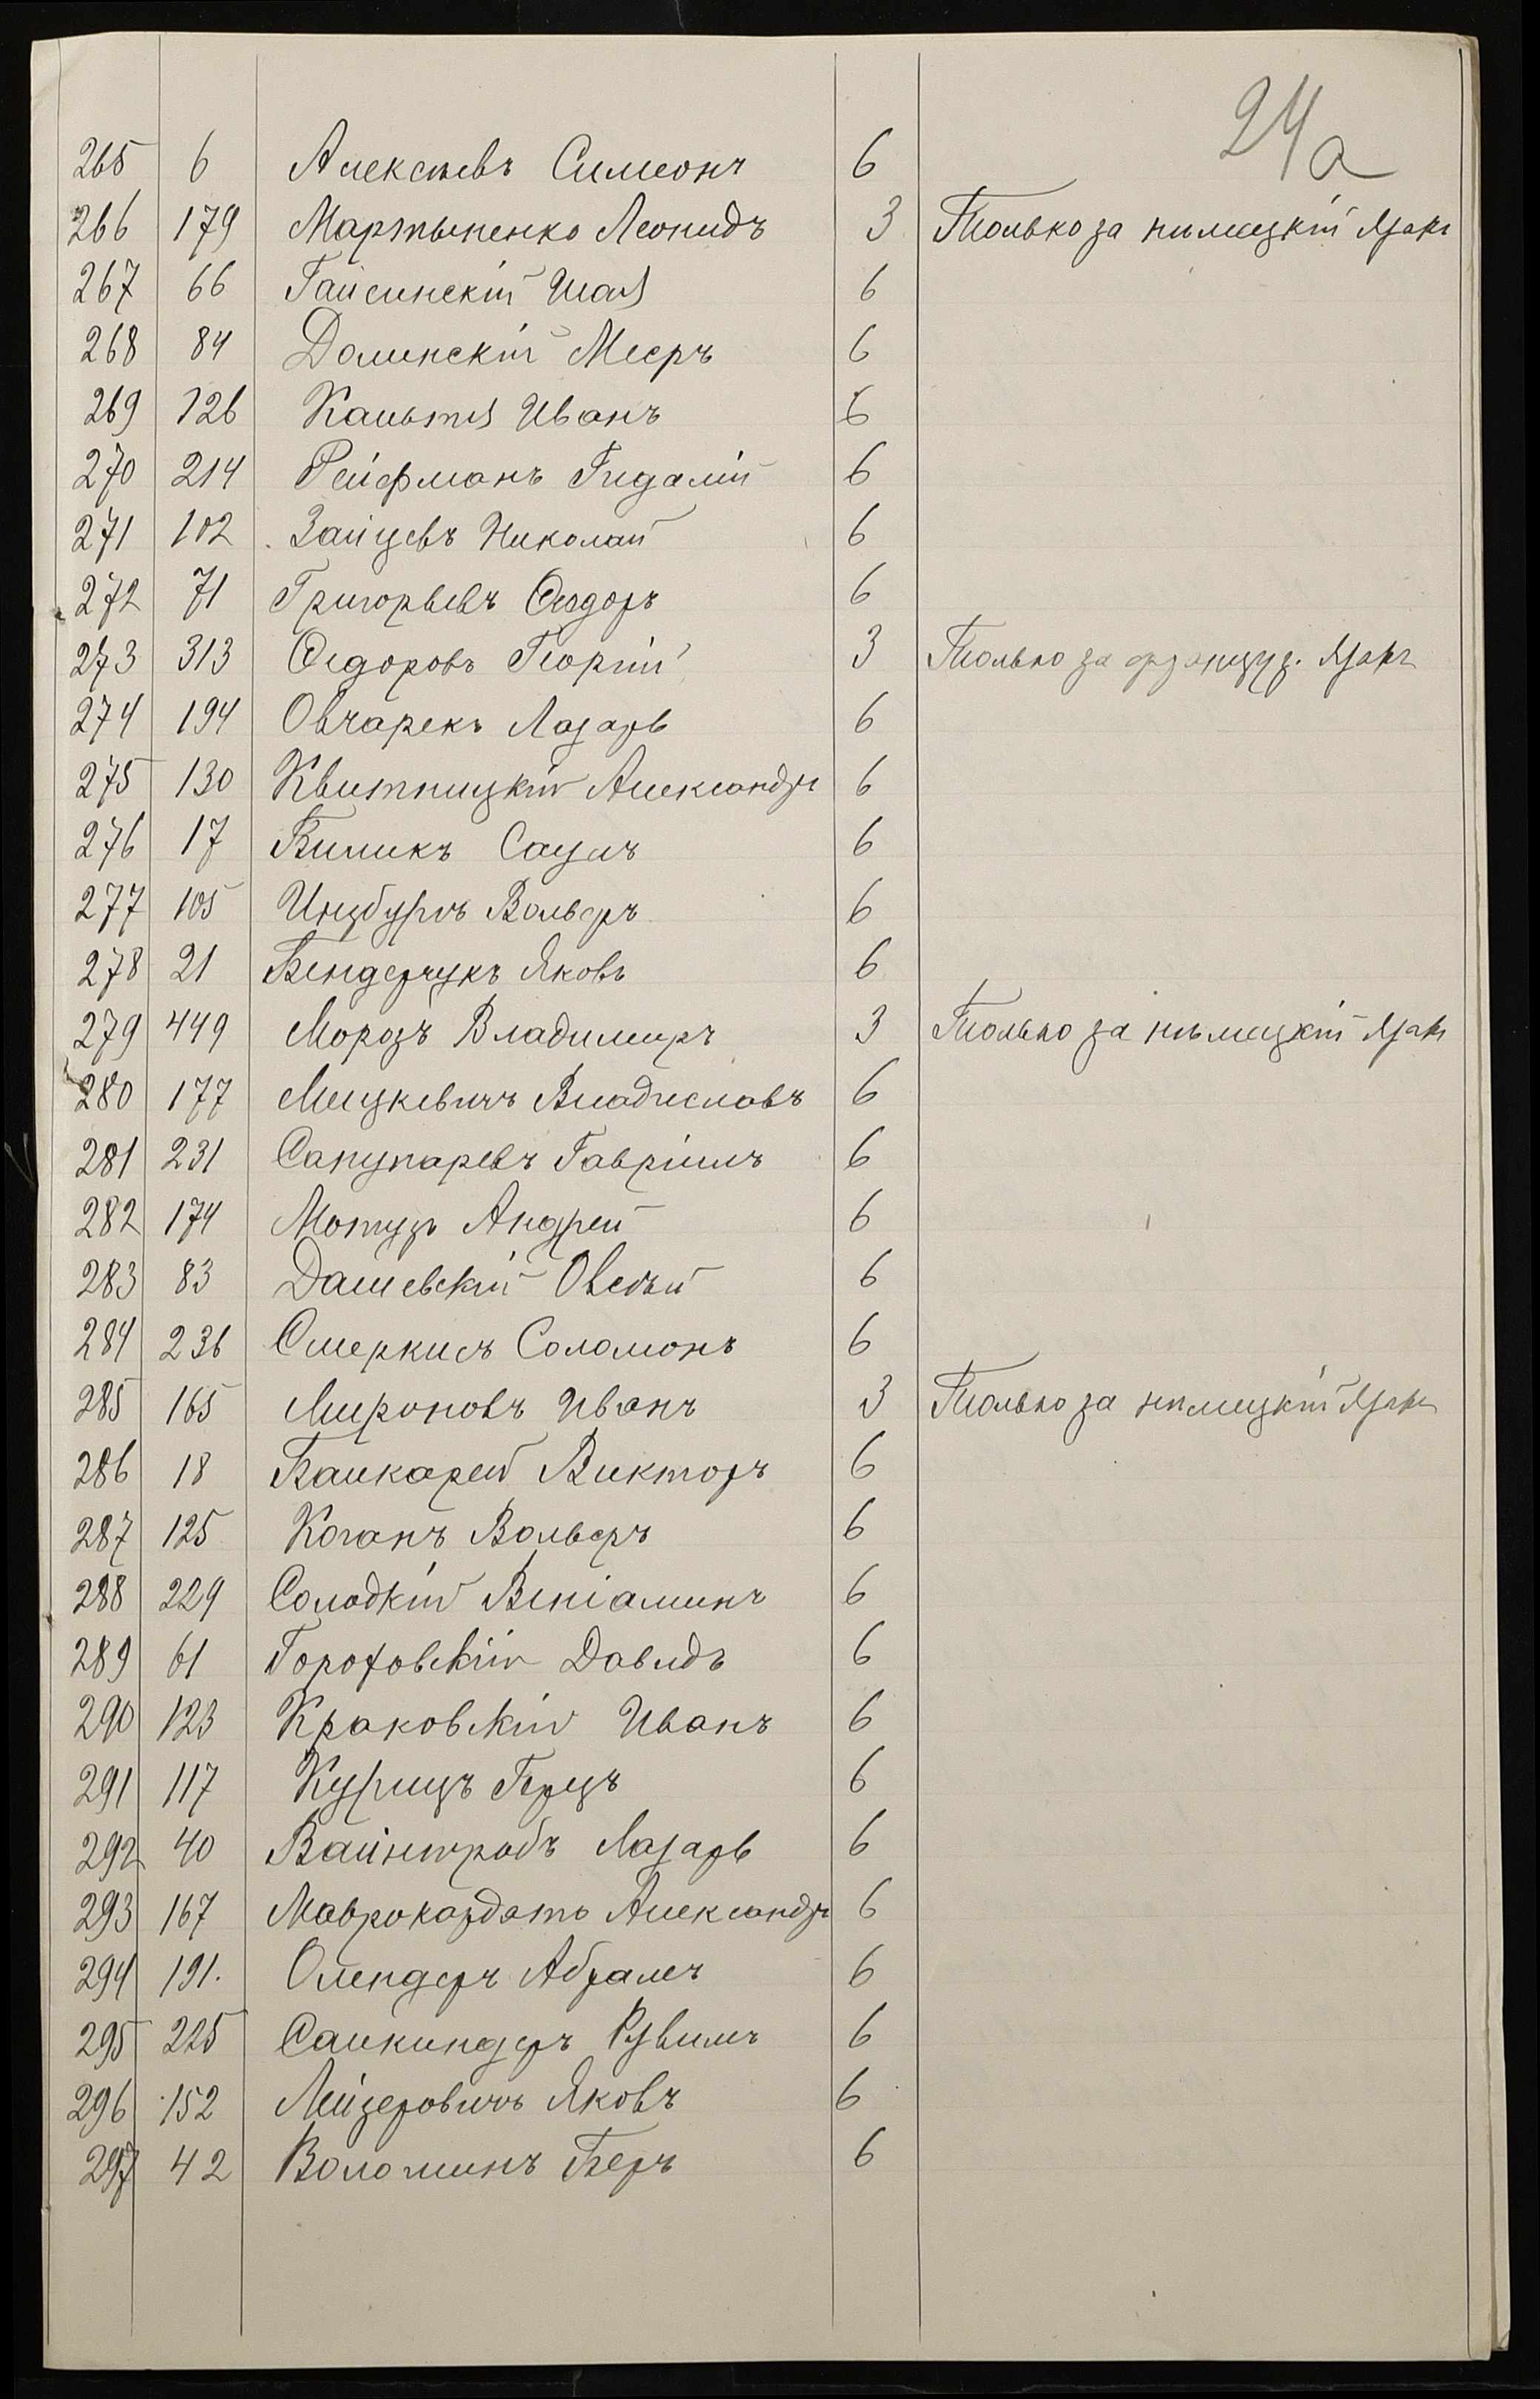 24а
265 6 Алексѣевъ Симеонъ 6
266 179 Мартыненко Леонидъ 3 Только за нѣмецкій языкъ
267 66 Гайсинскій Шая 6
268 84 Долинскій Мееръ 6
269 126 Кальтя Иванъ 6
270 214 Рейфманъ Гидалій 6
271 102 Зайцевъ Николай 6
272 71 Григорьевъ Ѳеодоръ 6
273 313 Ѳедоровъ Георгій 3 Только за француз. языкъ
274 194 Овчарекъ Лазарь 6
275 130 Квитницкій Александръ 6
276 17 Биликъ Саулъ 6
277 105 Инцбургъ Вольфъ 6
278 21 Бендерчукъ Яковъ 6
279 449 Морозъ Владимиръ 3 Только за нѣмецкій языкъ
280 177 Мицкевичъ Владиславъ 6
281 231 Сапунаревъ Гавріилъ 6
282 174 Мотузъ Андрей 6
283 83 Дашевскій Овсѣй 6
284 236 Смеркисъ Соломонъ 6
285 165 Мироновъ Иванъ 3 Только за нѣмецкій языкъ
286 18 Балкарей Викторъ 6
287 125 Коганъ Вольфъ 6
288 229 Солодкій Веніаминъ 6
289 61 Гороховскій Давидъ 6
290 123 Краковскій Иванъ 6
291 117 Курицъ Герцъ 6
292 40 Вайнтробъ Лазарь 6
293 167 Маврокордато Александръ 6
294 191. Олендеръ Абрамъ 6
295 225 Салкиндеръ Рувимъ 6
296 152 Лейзеровичъ Яковъ 6
297 42 Воломинъ Беръ 6